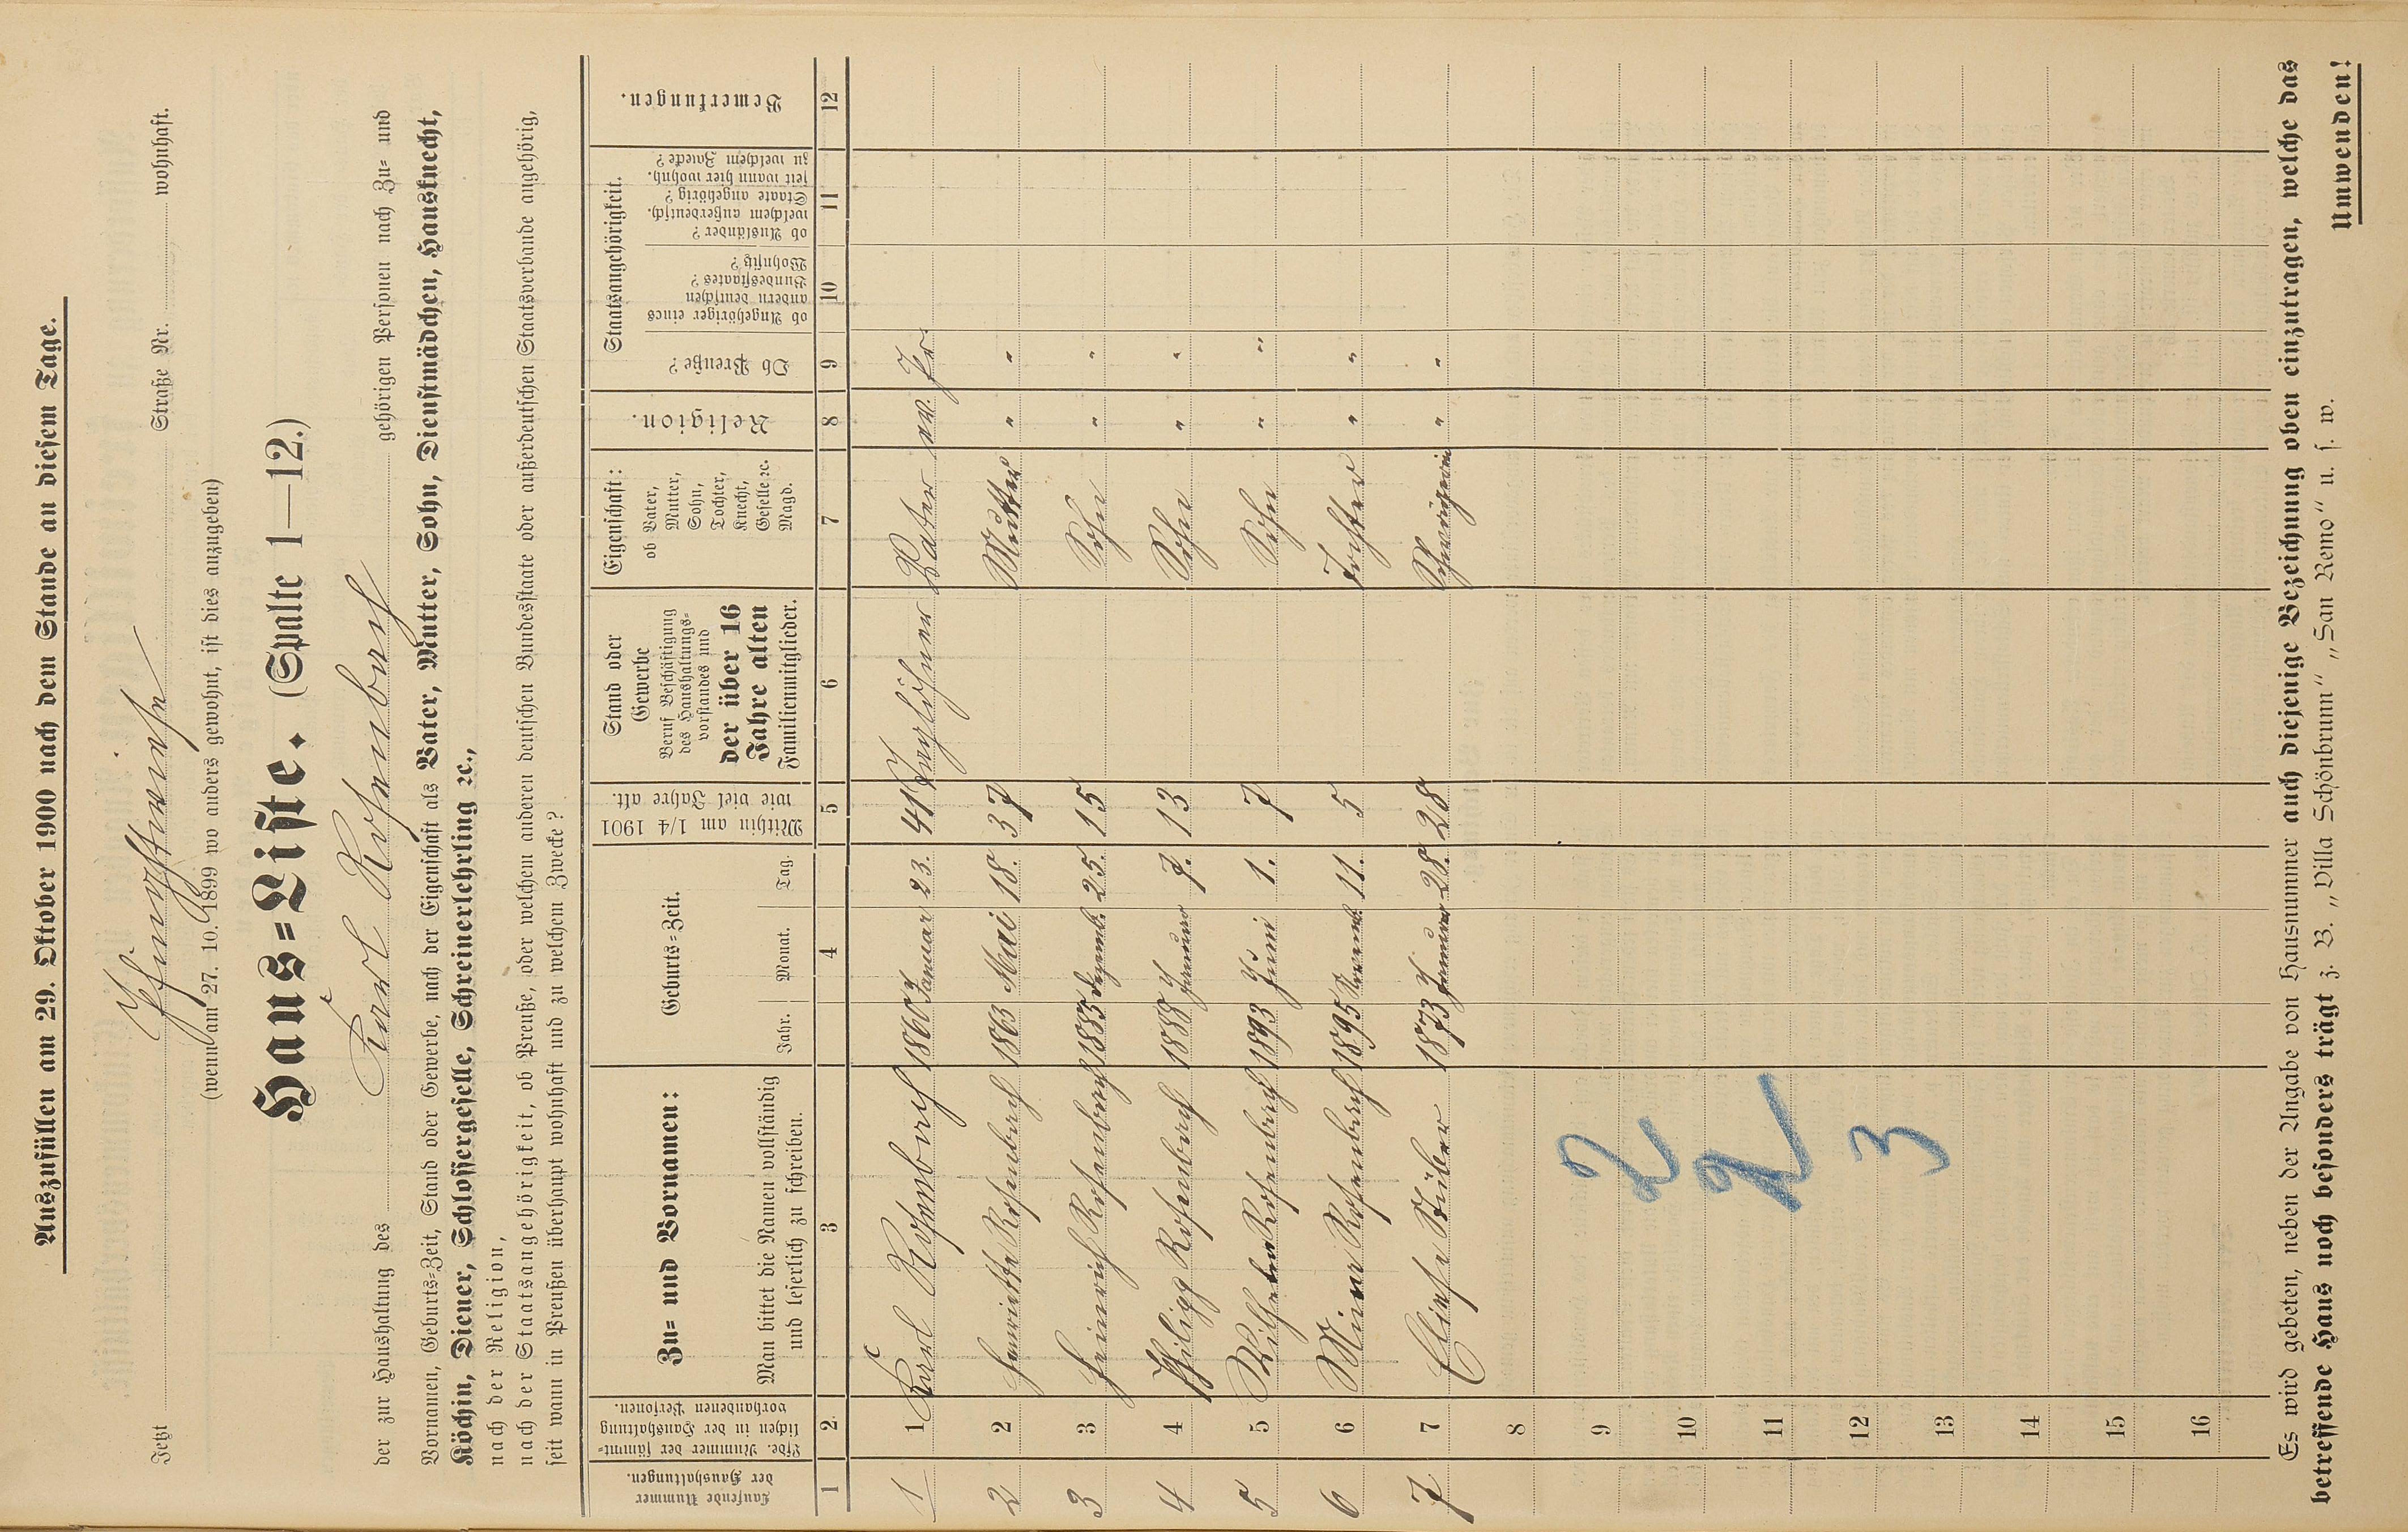 Auszufüllen am 29. Oktober 1900 nach dem Stande an diesem Tage.
Jetzt Pfingstweide Straße Nr. wohnhaft.
(wenn am 27. 10. 1899 wo anders gewohnt, ist dies anzugeben)
Haus=Liste. (Spalte 1—12.)
der zur Haushaltung des Karl Rosenbach gehörigen Personen nach Zu= und
Vornamen, Geburts=Zeit, Stand oder Gewerbe, nach der Eigenschaft als Vater, Mutter, Sohn, Dienstmädchen, Hausknecht,
Köchin, Diener, Schlossergeselle, Schreinerlehrling ꝛc.,
nach der Religion,
nach der Staatsangehörigkeit, ob Preuße, oder welchem anderen deutschen Bundesstaate oder außerdeutschen Staatsverbande angehörig,
seit wann in Preußen überhaupt wohnhaft und zu welchem Zwecke?
Laufende Nummer der Haushaltungen.
Lfde. Nummer der sämmt=lichen in der Haushaltung vorhandenen Personen.
Zu= und Vornamen:
Man bittet die Namen vollständig und leserlich zu schreiben.
Geburts=Zeit.
Jahr. Monat. Tag.
Mithin am 1/4 1901 wie viel Jahre alt.
Stand oder Gewerbe
Beruf Beschäftigung des Haushaltungs=vorstandes und
der über 16 Jahre alten Familienmitglieder.
Eigenschaft:
ob Vater, Mutter, Sohn, Tochter, Knecht, Geselle ꝛc. Magd.
Religion.
Staatsangehörigkeit.
Ob Preuße?
ob Angehöriger eines andern deutschen Bundesstaates? Wohnsitz?
ob Ausländer? welchem außerdeutsch. Staate angehörig? seit wann hier wohnh. zu welchem Zwecke?
Bemerkungen.
1 2 3 4 5 6 7 8 9 10 11 12
1 1 Karl Rosenbach 1860 Januar 23. 41 Taglöhner Vater ev. Pr.
2 2 Henriette Rosenbach 1863 Mai 18. 37 Mutter " "
3 3 Heinrich Rosenbach 1885 Dezemb. 25. 15 Sohn " "
4 4 Philipp Rosenbach 1888 Januar 7. 13 Sohn " "
5 5 Wilhelm Rosenbach 1893 Juni 1. 7 Sohn " "
6 6 Mina Rosenbach 1895 Novemb. 11. 5 Tochter " "
7 7 Eliese 1873 Januar 28. 28 Schwägerin " "
8
9
10
11
12
13
14
15
16
2
2
3
Es wird gebeten, neben der Angabe von Hausnummer auch diejenige Bezeichnung oben einzutragen, welche das
betreffende Haus noch besonders trägt z. B. „Villa Schönbrunn" „San Remo" u. s. w.
Umwenden!